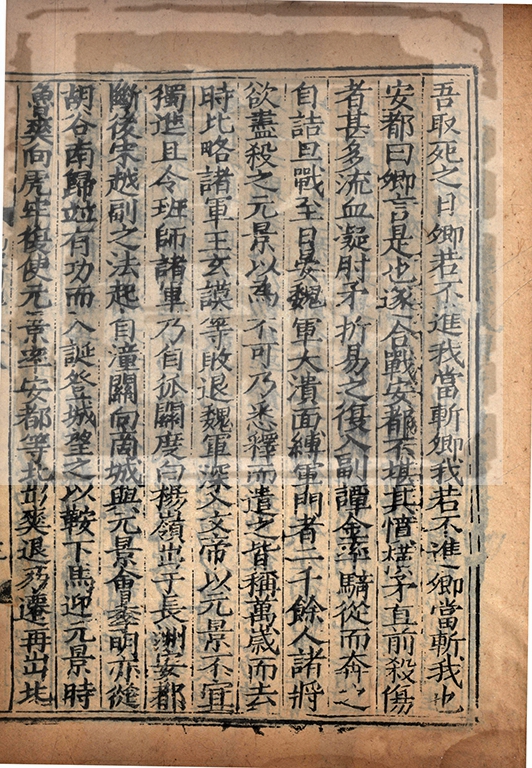 吾取死之日卿若不進我當斬卿我若不進卿當斬我也
安都曰卿言是也遂合戰安都不堪其憤橫矛直前殺傷
者甚多流血凝肘矛折易之復入副譚金率騎從而奔之
自詰旦戰至日晏魏軍大潰面縛軍門者二千餘人諸將
欲盡殺之元景以爲不可乃悉釋而遣之皆稱萬歲而去
時北略諸軍王玄謨等敗退魏軍深入文帝以元景不宜
獨進且令班師諸軍乃自狐關度白楊嶺出于長洲安都
斷後宋越副之法起自潼關向商城與元景會季明亦從
胡谷南歸並有功而入誕登城望之以鞍下馬迎元景時
魯爽向虎牢復使元景率安都等北出爽退乃還再出北